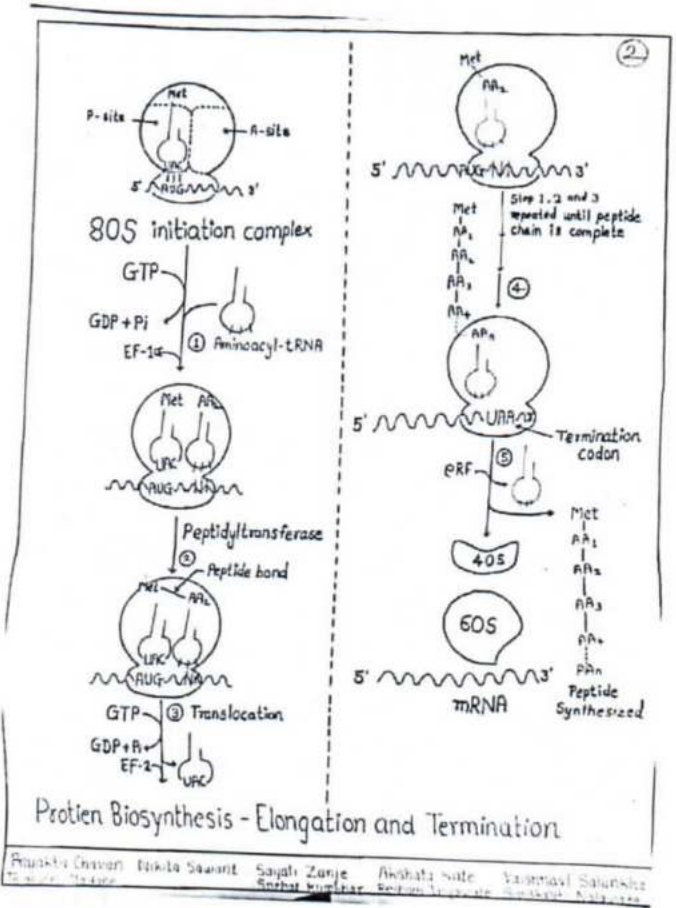 2
Met
P-site
A-site
UAC
5' AUG 3'
80S initiation complex
GTP
GDP + Pi
① Aminoacyl-tRNA
EF-1α
Met AA₂
UAC
AUG
Peptidyltransferase
②
Peptide bond
Met AA₂
UAC
AUG
GTP
③ Translocation
GDP+Pi
EF-2
UAC
Met
AA₂
5' AUG 3'
Step 1, 2 and 3
repeated until peptide
chain is complete
Met
AA₁
AA₂
AA₃
AA₄
④
AAn
5' UAA 3'
Termination
codon
⑤
eRF
Met
AA₁
AA₂
AA₃
AA₄
AAn
40S
60S
5' 3'
mRNA
Peptide
Synthesized
Protien Biosynthesis - Elongation and Termination
Prajakta Chavan Nikita Sawant Sayali Zanje Akshata Vaishnavi Salunkhe